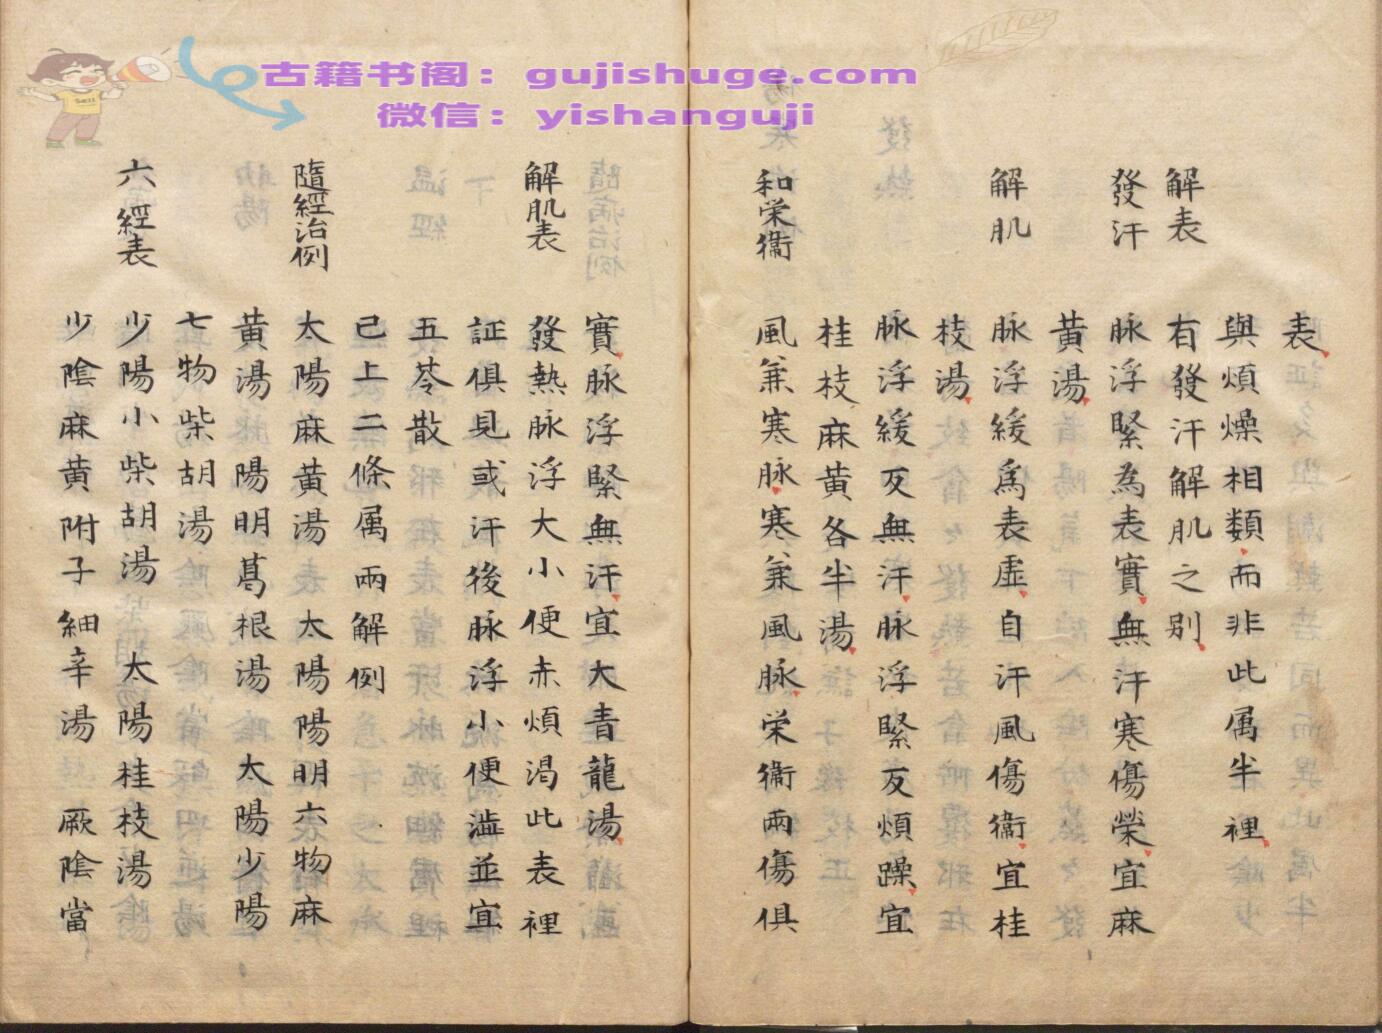 古籍书阁：gujishuge.com
微信：yishanguji
表
與煩燥相類而非此属半裡
解表
有發汗解肌之別
發汗
脉浮緊為表實無汗寒傷榮宜麻
黄湯
解肌
脉浮緩爲表虛自汗風傷衞宜桂
枝湯
脉浮緩反無汗脉浮緊反煩躁宜
桂枝麻黄各半湯
和栄衞
風兼寒脉寒兼風脉栄衞兩傷俱
實脉浮緊無汗宜大青龍湯
解肌表
發熱脉浮大小便赤煩渇此表裡
証俱見或汗後脉浮小便澁並宜
五苓散
已上二條属兩解例
隨經治例
太陽麻黄湯 太陽陽明六物麻
黄湯 陽明葛根湯 太陽少陽
七物柴胡湯
六經表
少陽小柴胡湯 太陽桂枝湯
少陰麻黄附子細辛湯 厥陰當